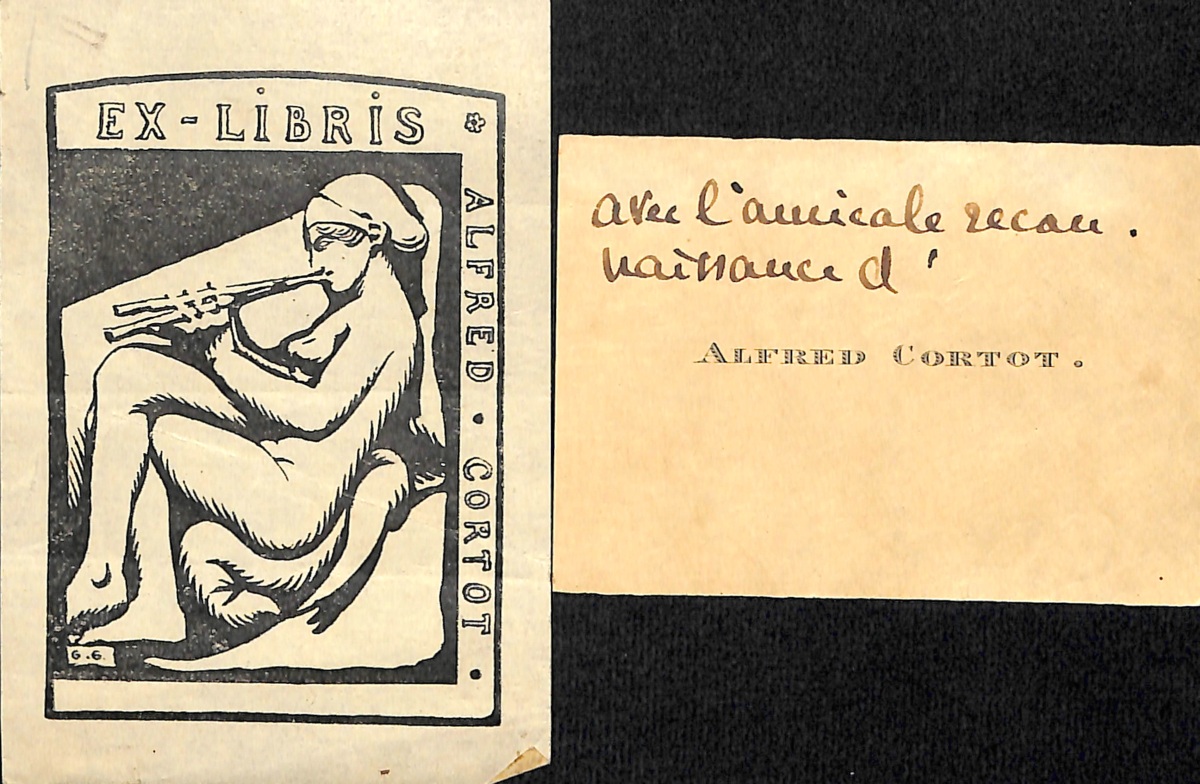 EX-LIBRIS
ALFRED · CORTOT ·
G.G.
avec l'amicale recon.
naissance d'
ALFRED CORTOT.